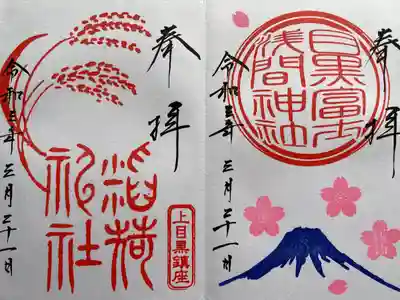 奉拝
稲荷
神社
上目黒鎮座
令和三年三月二十一日
奉拝
目黒富士
浅間神社
令和三年三月二十一日